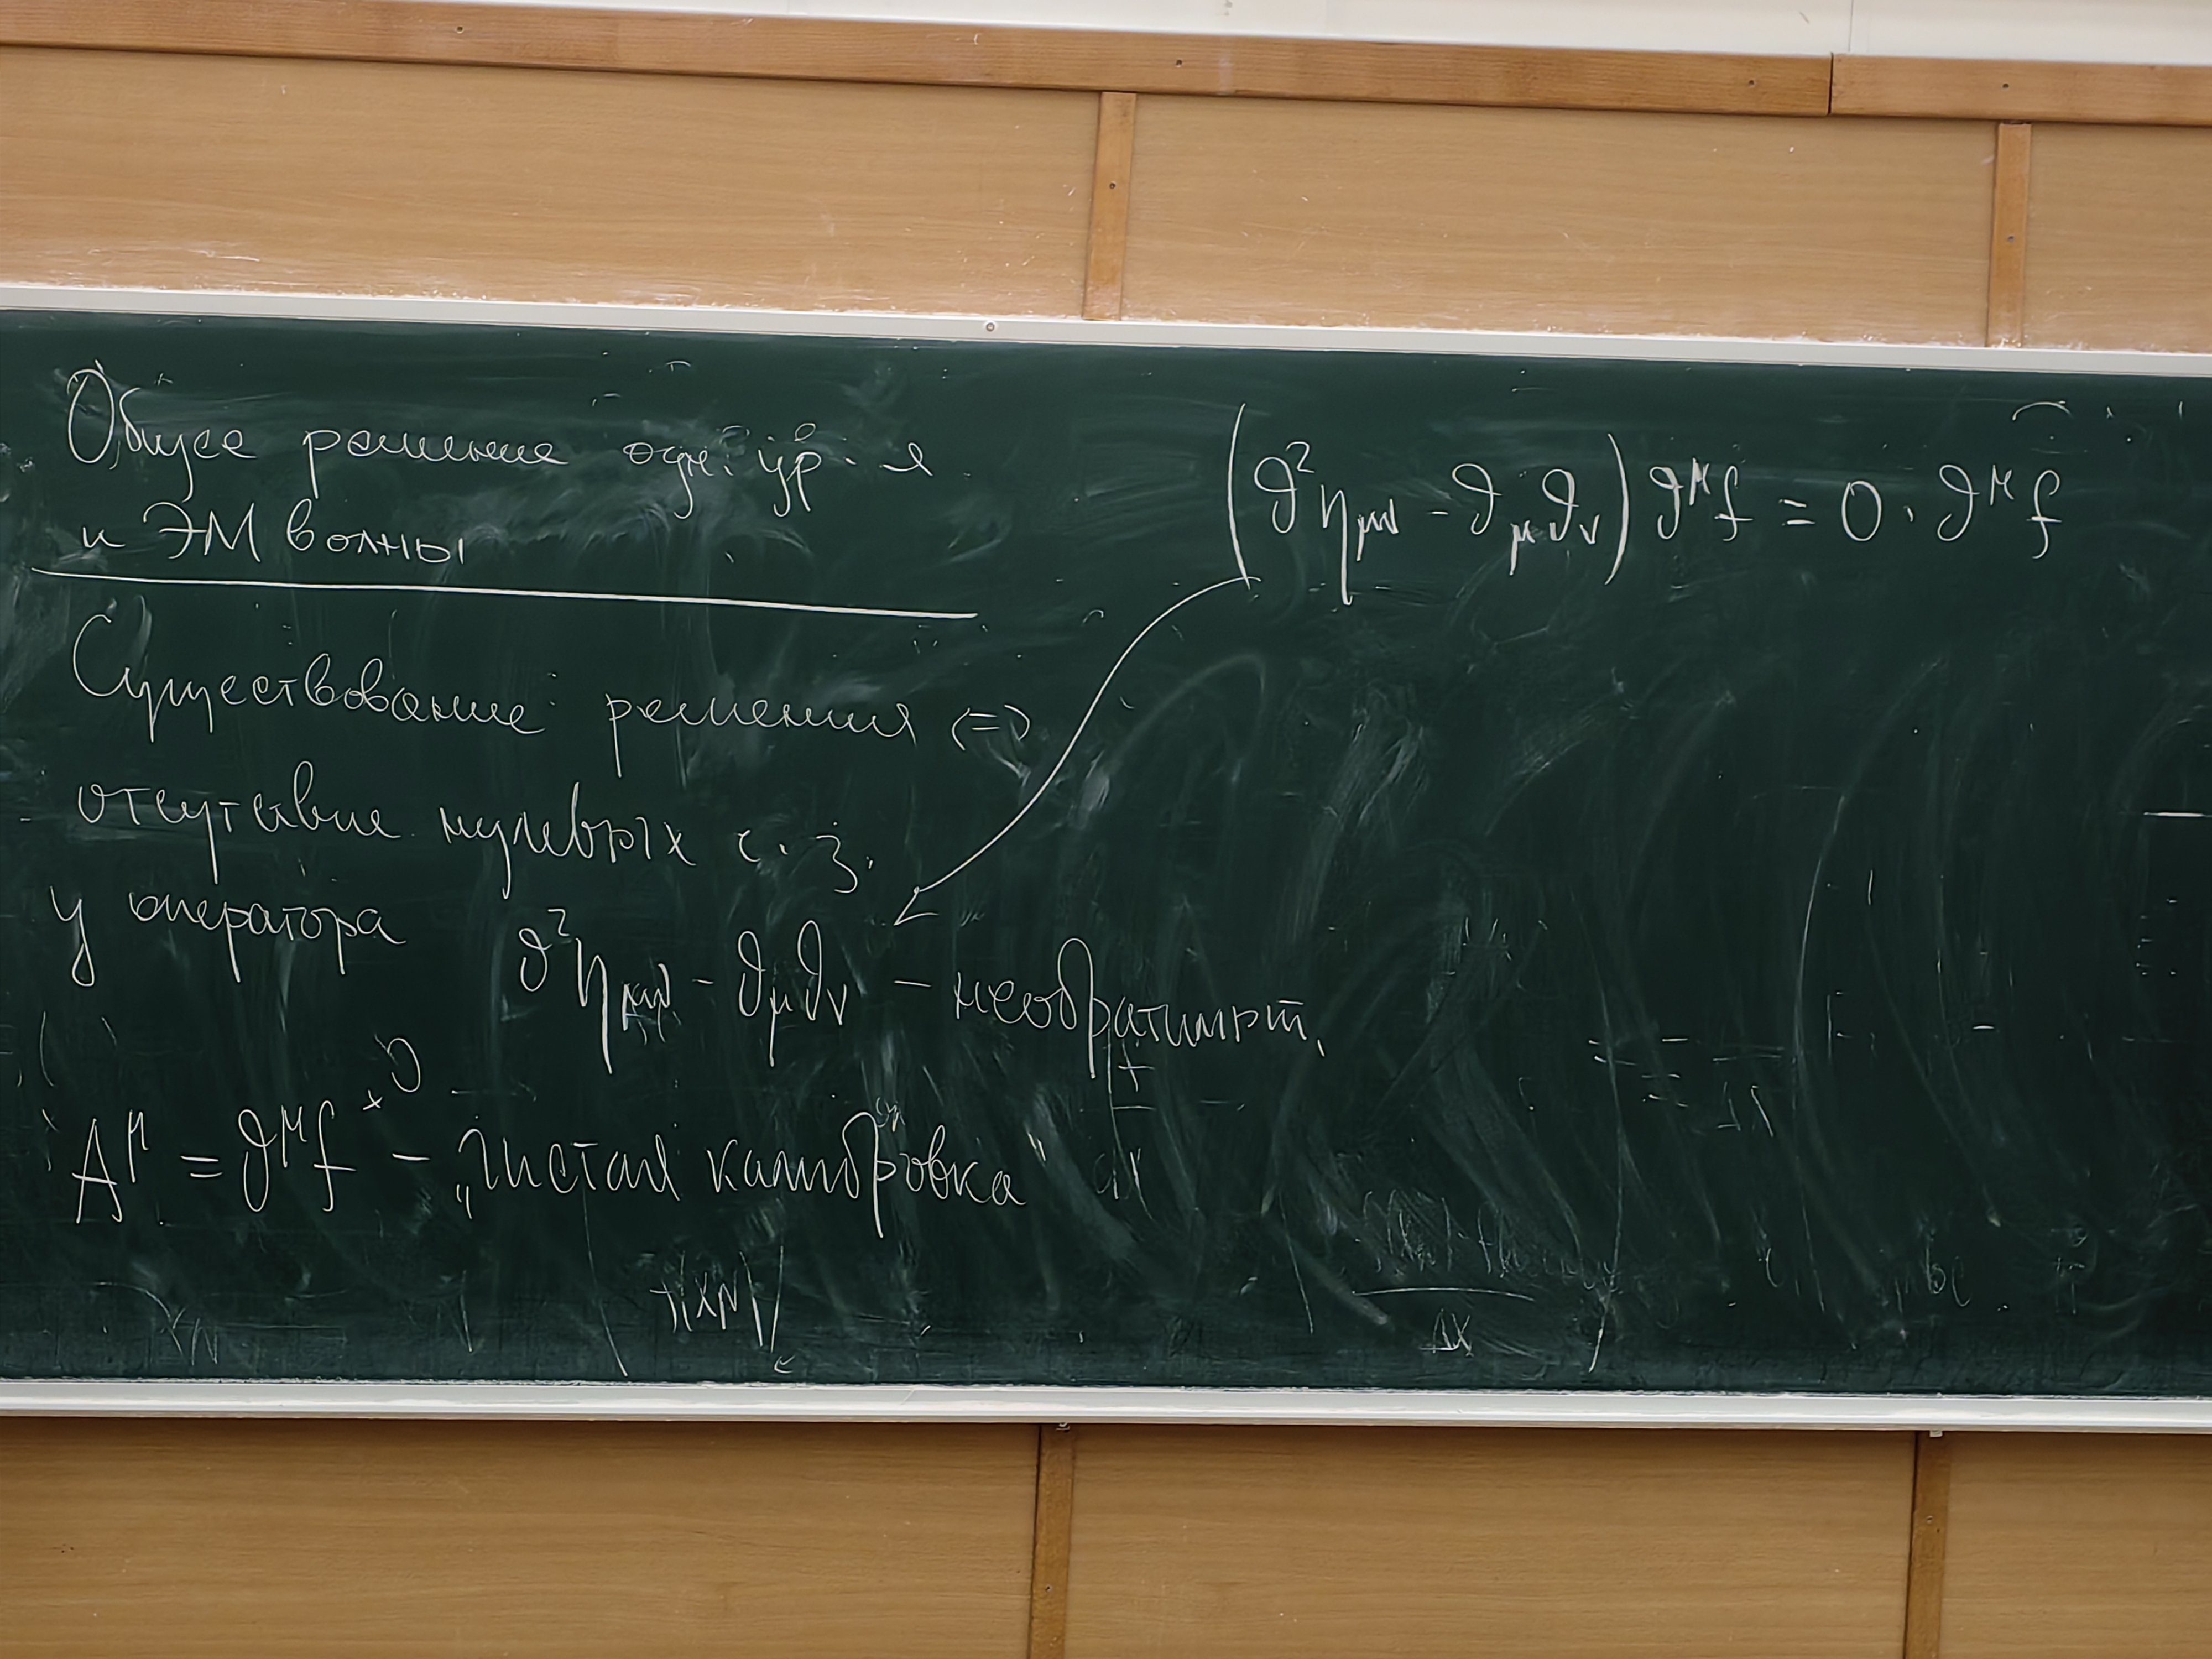 Общее решение одн. ур-я
и ЭМ волны
Существование решения <=>
отсутствие нулевых с.з.
у оператора ∂²η_μν - ∂_μ∂_ν - необратимый.
A^μ = ∂^μ f - „чистая калибровка"
(∂²η_μν - ∂_μ∂_ν) ∂^μ f = 0 · ∂^μ f
Δx